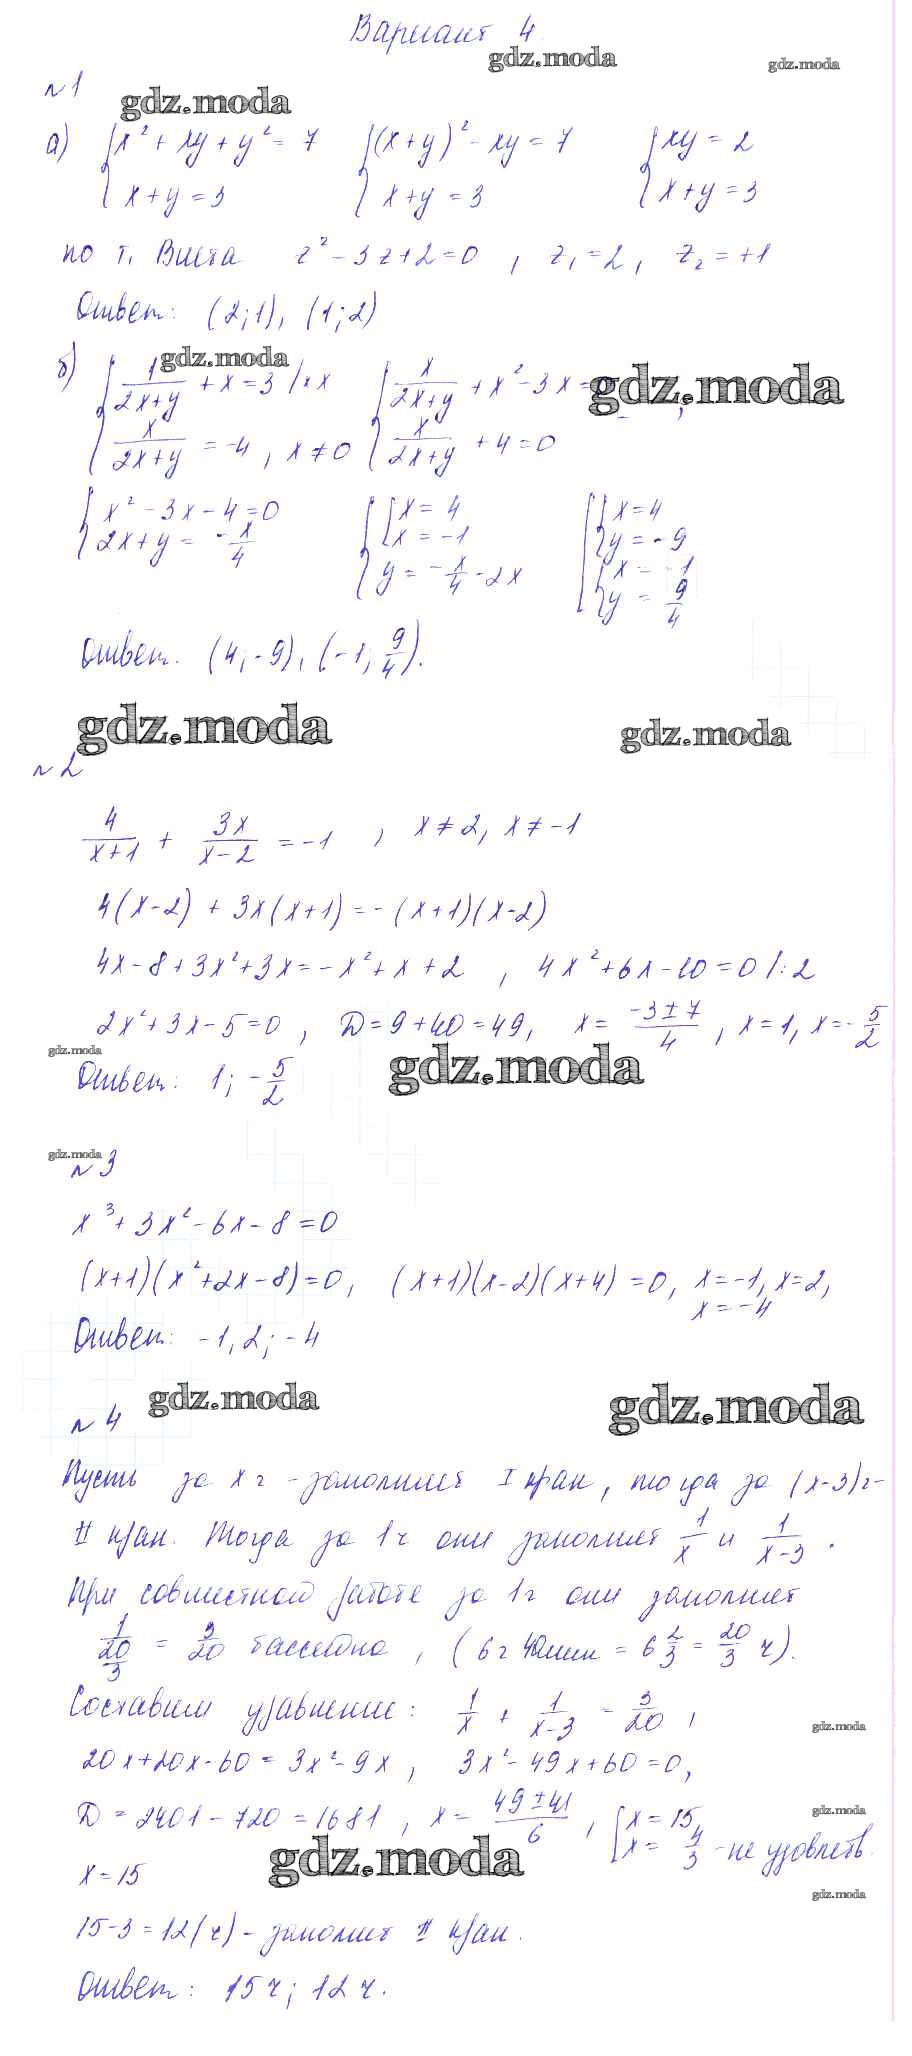 Вариант 4
gdz.moda
gdz.moda
№1
gdz.moda
а) { x² + xy + y² = 7 { (x+y)² - xy = 7 { xy = 2
x+y = 3 x+y = 3 x+y = 3
по т. Виета z² - 3z + 2 = 0 , z₁ = 2, z₂ = +1
Ответ: (2;1), (1;2)
gdz.moda
б) { 1/(2x+y) + x = 3 |·x { x/(2x+y) + x² - 3x =
gdz.moda
x/(2x+y) = -4 , x ≠ 0 x/(2x+y) + 4 = 0
{ x² - 3x - 4 = 0 { [ x = 4 [ { x = 4
2x+y = -x/4 x = -1 y = -9
y = -x/4 - 2x { x = -1
y = 9/4
Ответ. (4;-9), (-1; 9/4).
gdz.moda
gdz.moda
№2
4/(x+1) + 3x/(x-2) = -1 , x ≠ 2, x ≠ -1
4(x-2) + 3x(x+1) = -(x+1)(x-2)
4x - 8 + 3x² + 3x = -x² + x + 2 , 4x² + 6x - 10 = 0 |:2
2x² + 3x - 5 = 0 , D = 9 + 40 = 49, x = (-3 ± 7)/4 , x = 1, x = -5/2
gdz.moda
gdz.moda
Ответ: 1; -5/2
gdz.moda
№3
x³ + 3x² - 6x - 8 = 0
(x+1)(x² + 2x - 8) = 0, (x+1)(x-2)(x+4) = 0, x = -1, x = 2,
x = -4
Ответ: -1, 2; -4
gdz.moda
gdz.moda
№4
Пусть за x ч - заполнит I кран, тогда за (x-3) ч -
II кран. Тогда за 1 ч они заполнят 1/x и 1/(x-3) .
При совместной работе за 1 ч они заполнят
1/(20/3) = 3/20 бассейна , (6 ч 40 мин = 6 2/3 = 20/3 ч).
Составим уравнение: 1/x + 1/(x-3) = 3/20 ,
gdz.moda
20x + 20x - 60 = 3x² - 9x , 3x² - 49x + 60 = 0,
D = 2401 - 720 = 1681 , x = (49 ± 41)/6 , [ x = 15,
gdz.moda
x = 4/3 - не удовлетв.
gdz.moda
x = 15
gdz.moda
15 - 3 = 12 (ч) - заполнит II кран.
Ответ: 15 ч; 12 ч.